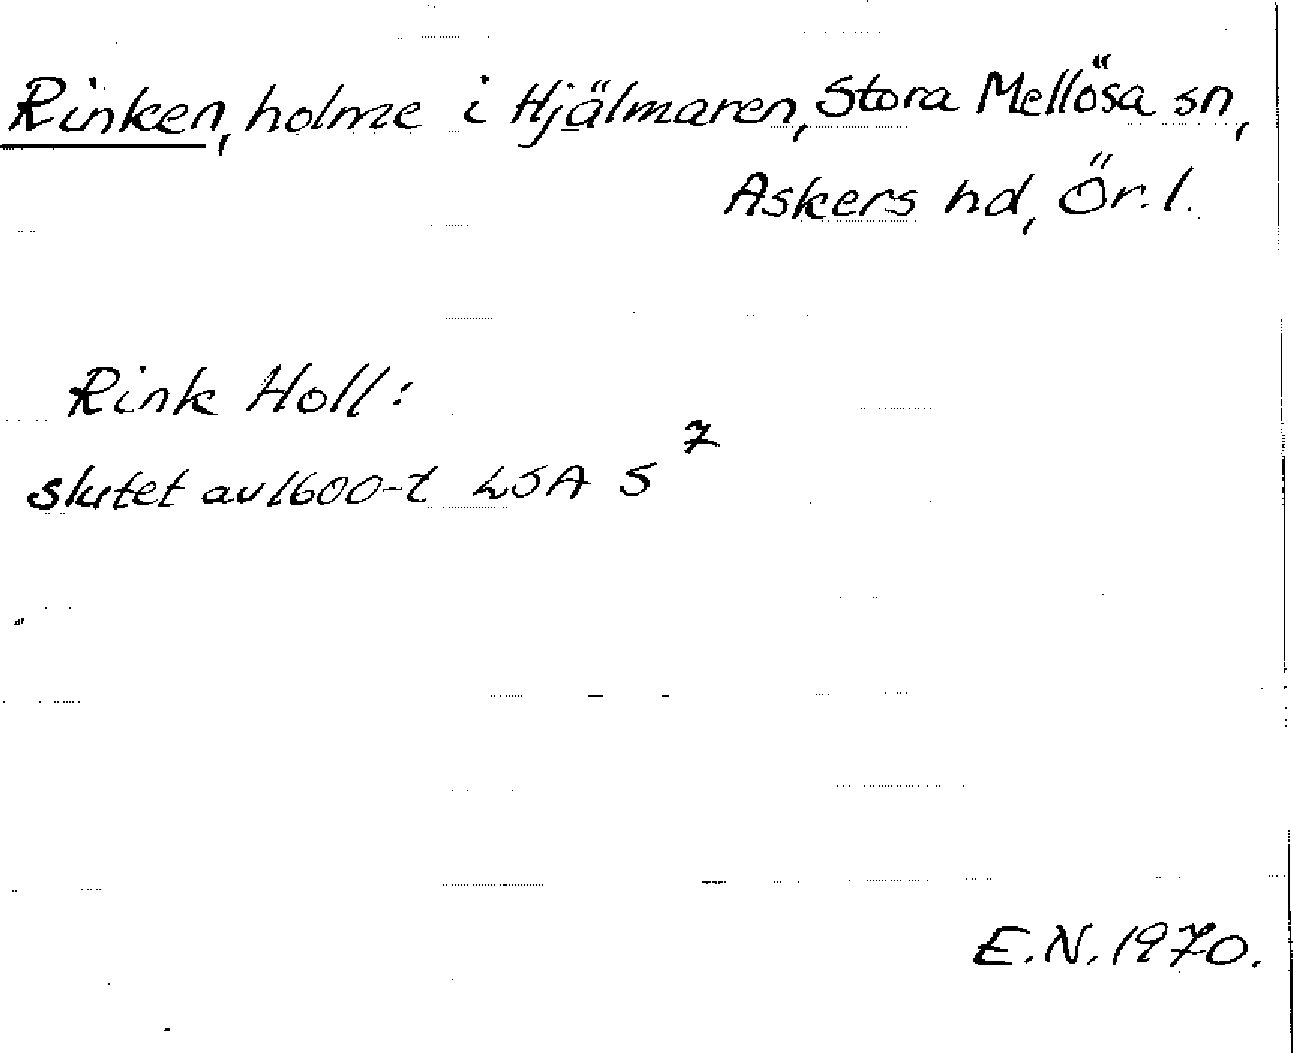 Rinken, holme i Hjälmaren, Stora Mellösa sn,
Askers hd, Ör. l.
Rink Holl:
slutet av 1600-t LSA S 7
E.N. 1970.